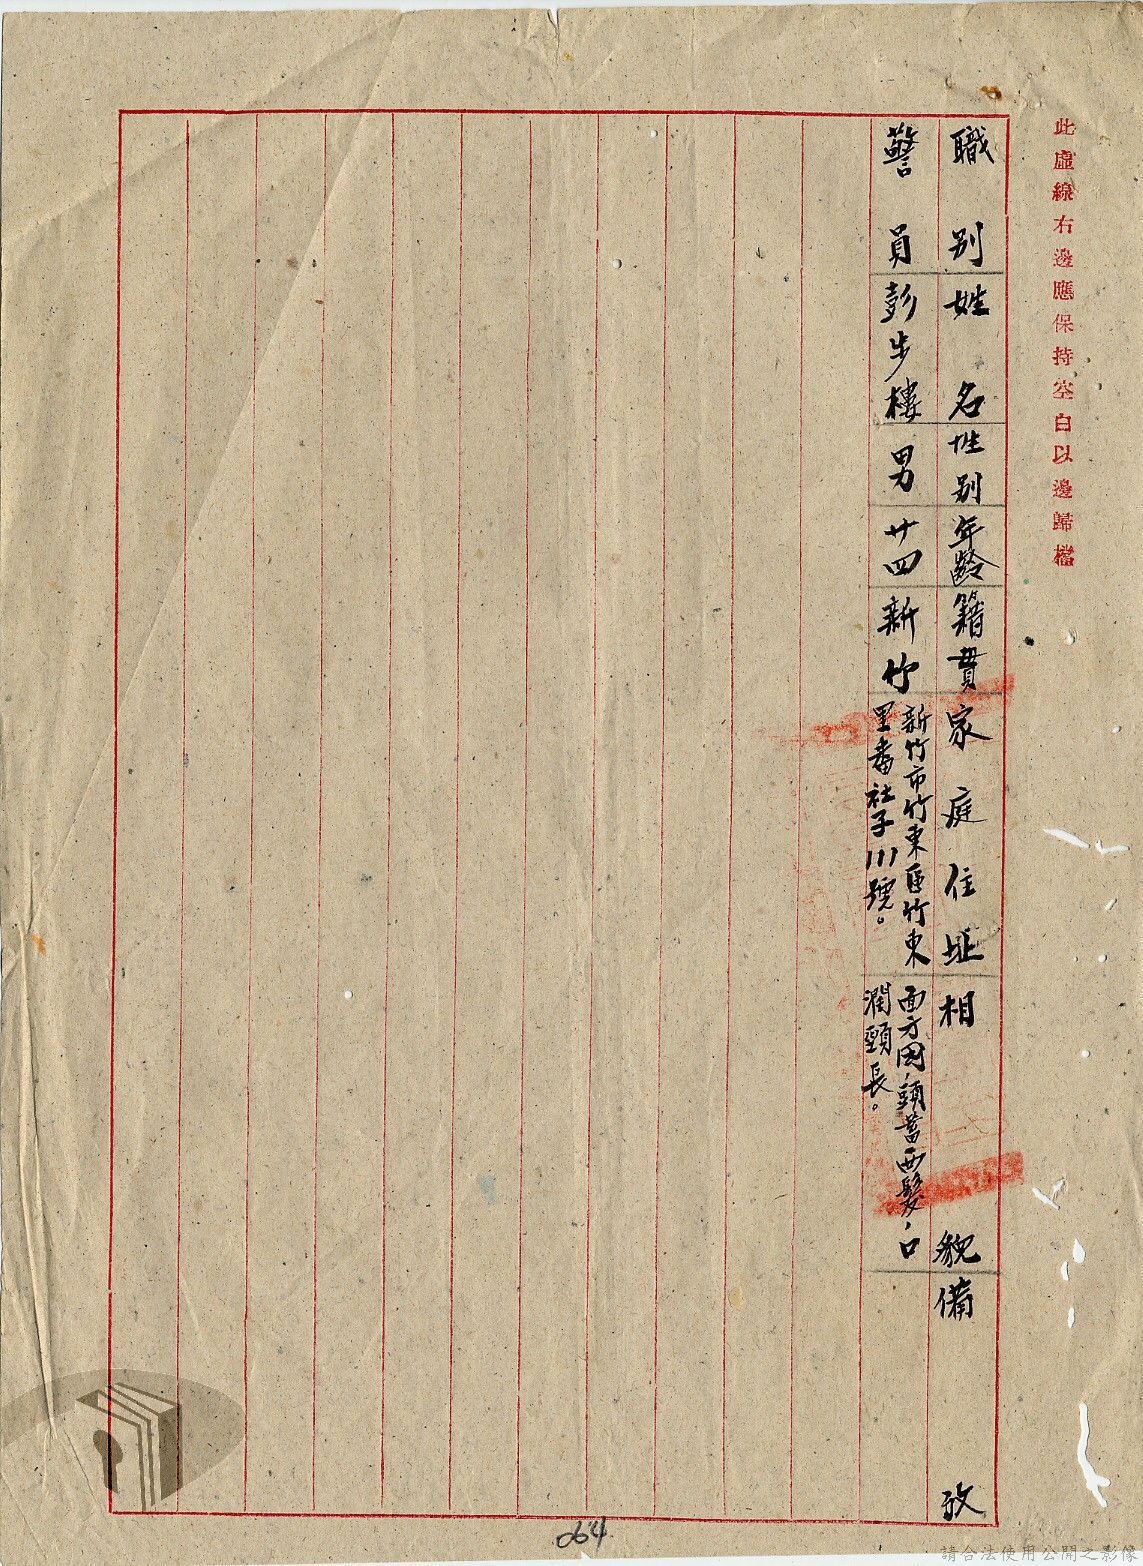 此虛線右邊應保持空白以邊歸檔
職別 姓名 性別 年齡 籍貫 家庭住址 相貌 備攷
警員 彭步樓 男 廿四 新竹 新竹市竹東區竹東
里番社子111號。
面方圓，頭蓄西髮，口
潤頸長。
064
請合法使用公開之影像